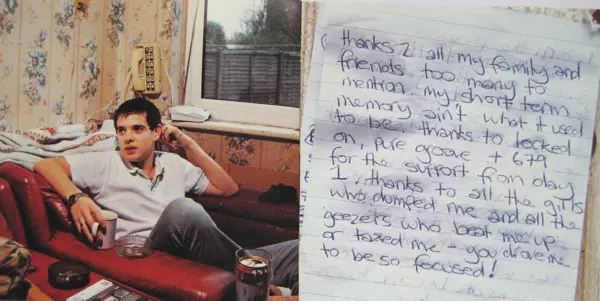 thanks 2 all my family and
friends too many to
mention. my short term
memory ain't what it used
to be. thanks to locked
on, pure groove + 679
for the support from day
1. thanks to all the girls
who dumped me and all the
geezers who beat me up
or taxed me - you drove me
to be so focused!